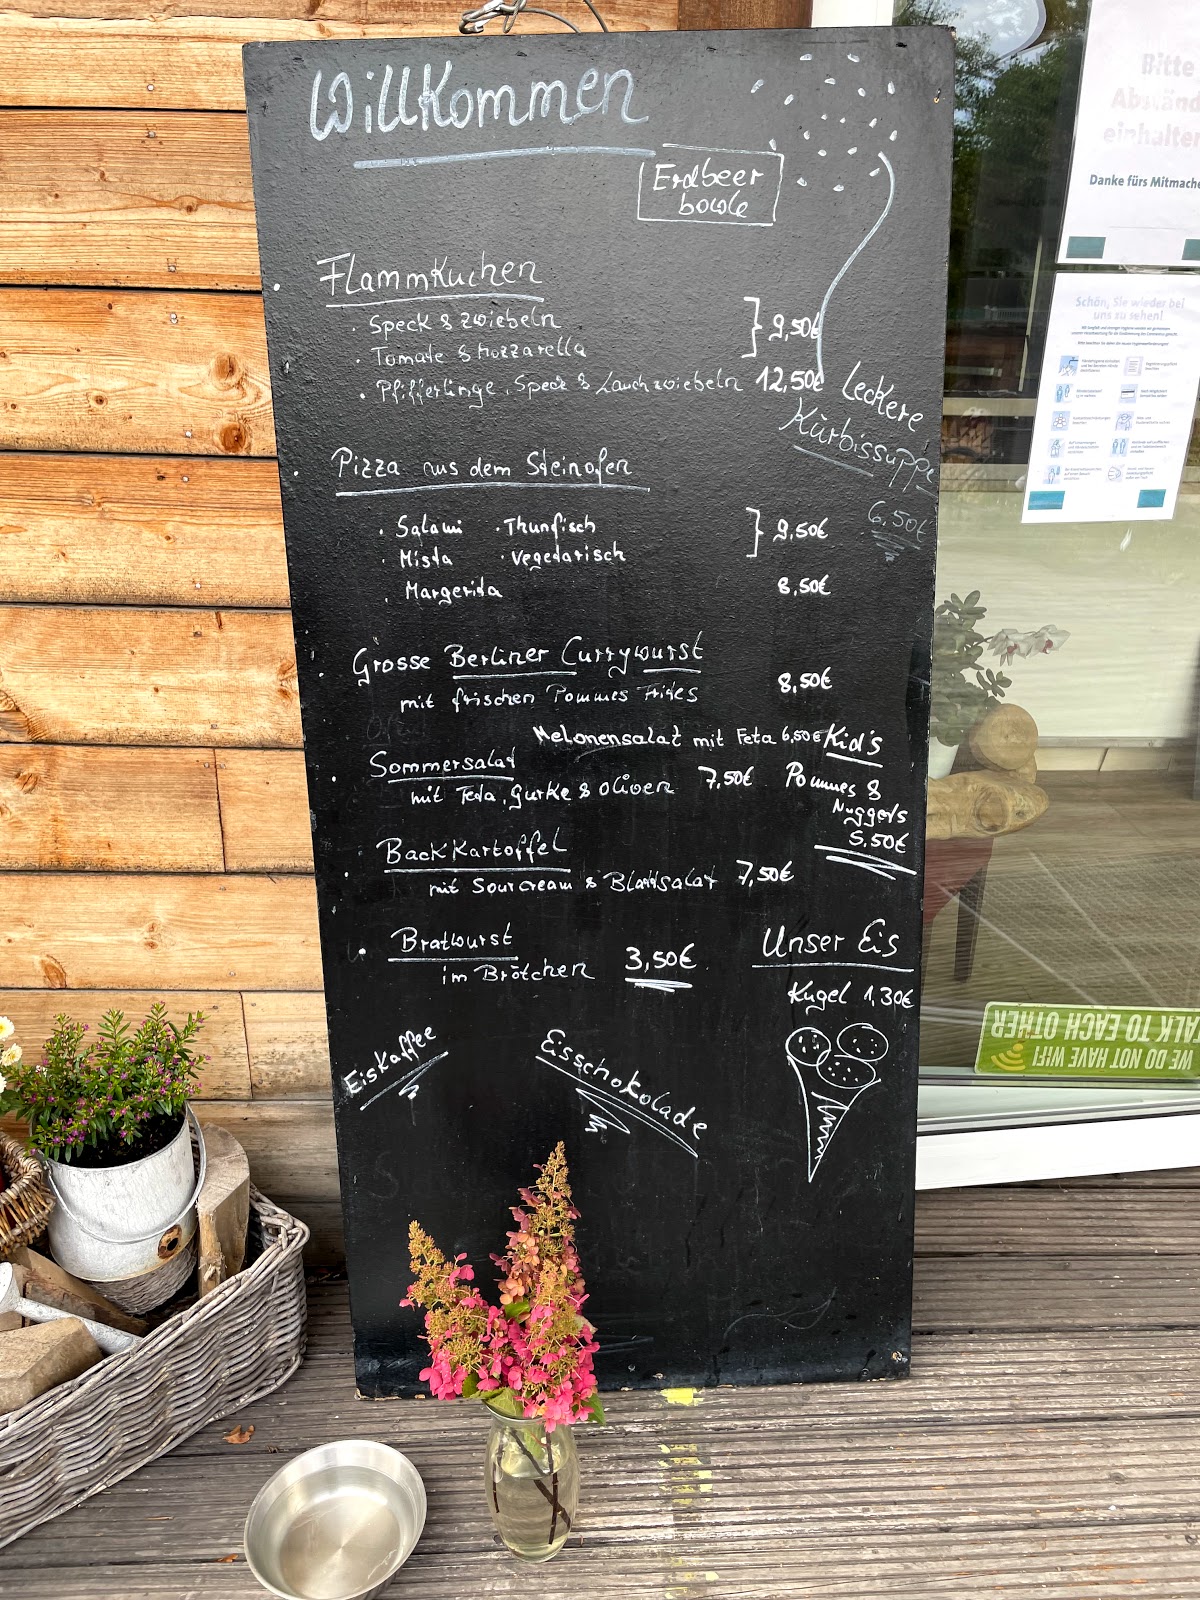 Willkommen
Erdbeer
bowle
Flammkuchen
. Speck & Zwiebeln
. Tomate & Mozzarella
} 9,50€
. Pfifferlinge, Speck & Lauchzwiebeln 12,50€
Leckere
Kürbissuppe
6,50€
Pizza aus dem Steinofen
. Salami . Thunfisch
. Mista . Vegetarisch
} 9,50€
. Margerita 8,50€
Grosse Berliner Currywurst
mit frischen Pommes Frites 8,50€
Melonensalat mit Feta 6,50€
Sommersalat
mit Feta, Gurke & Oliven 7,50€
Kid's
Pommes &
Nuggets
5,50€
Backkartoffel
mit Sourcream & Blattsalat 7,50€
Bratwurst
im Brötchen 3,50€
Unser Eis
Kugel 1,30€
Eiskaffee
Eisschokolade
Bitte
Abständ
einhalten
Danke fürs Mitmache
Schön, Sie wieder bei
uns zu sehen!
WE DO NOT HAVE WIFI
TALK TO EACH OTHER